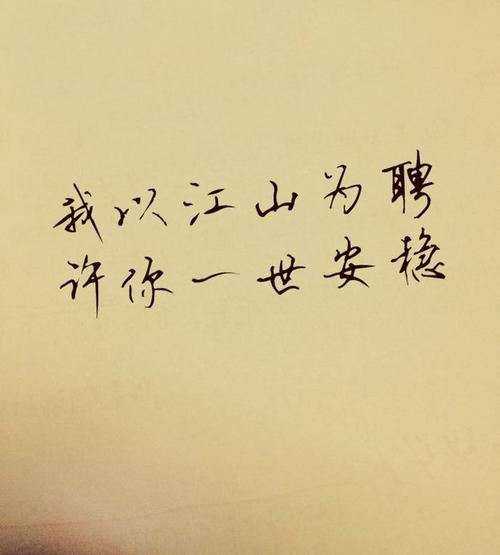 我以江山为聘
许你一世安稳